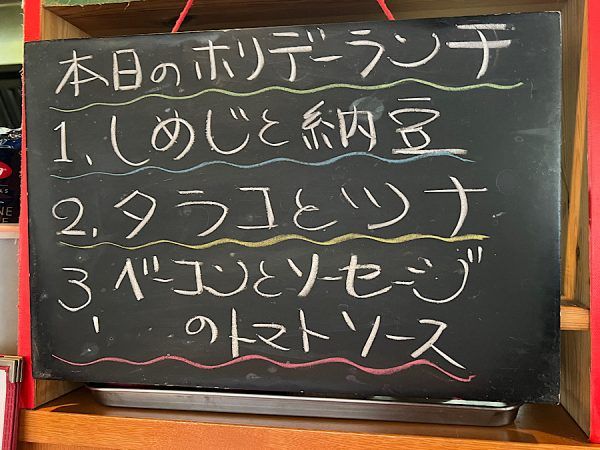 本日のホリデーランチ
1. しめじと納豆
2. タラコとツナ
3. ベーコンとソーセージ
のトマトソース